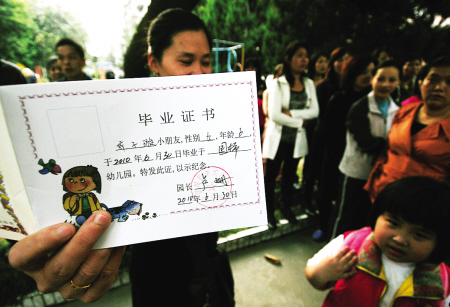 毕业证书
小朋友,性别女,年龄6
于2010年6月30日毕业于
幼儿园,特发此证,以示纪念。
园长:
2010年6月30日